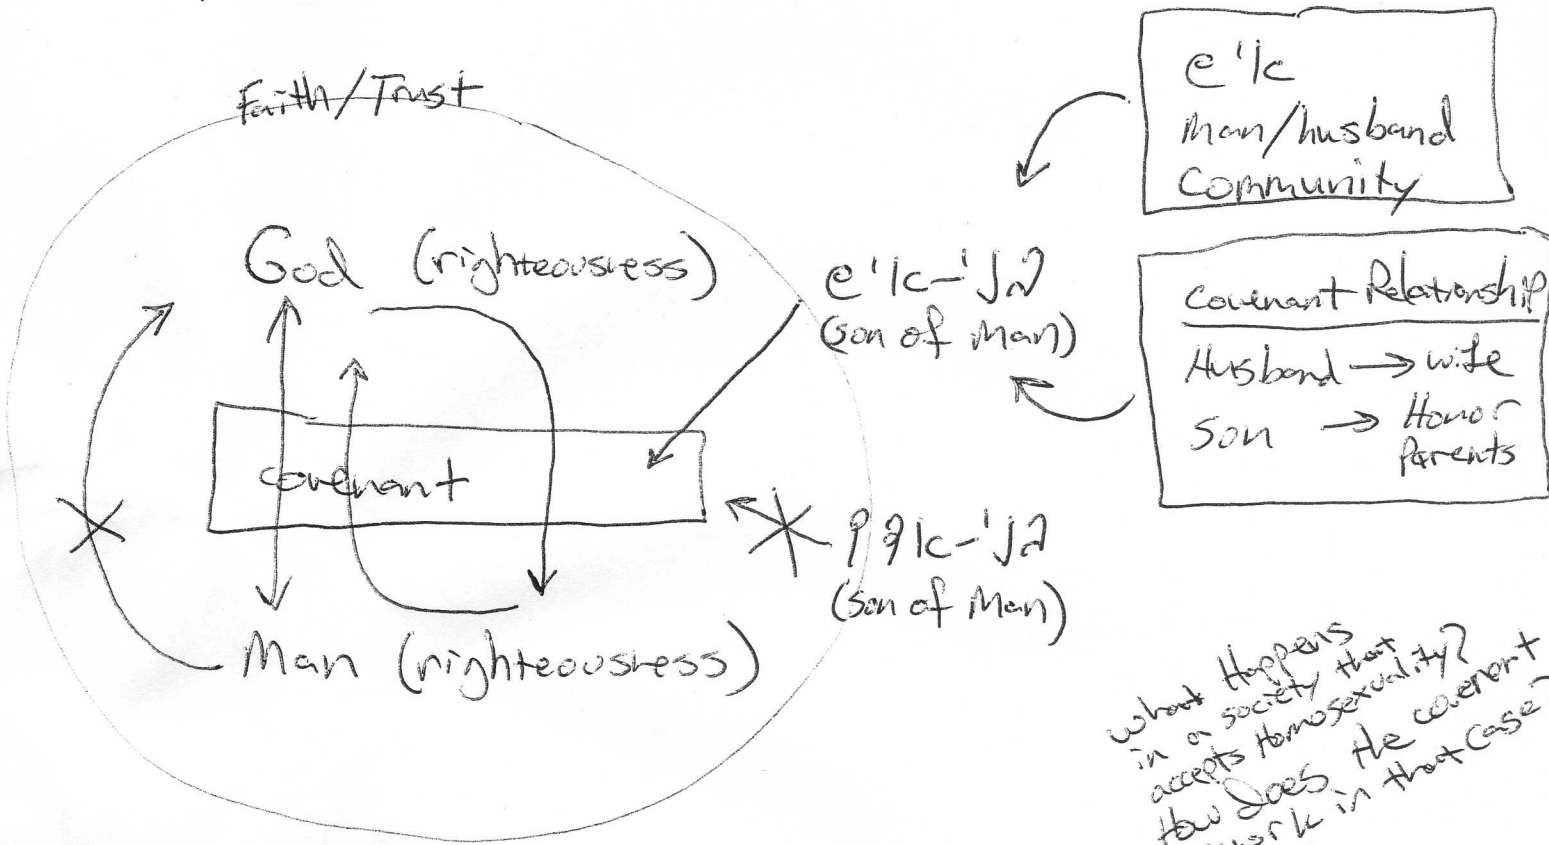 Faith/Trust
God (righteousness)
covenant
Man (righteousness)
בני-איש
(son of Man)
בני-אדם
(son of Man)
איש
Man/husband
Community
Covenant Relationship
Husband → wife
Son → Honor
Parents
What Happens
in a society that
accepts Homosexuality?
How Does the covenant
work in that case?